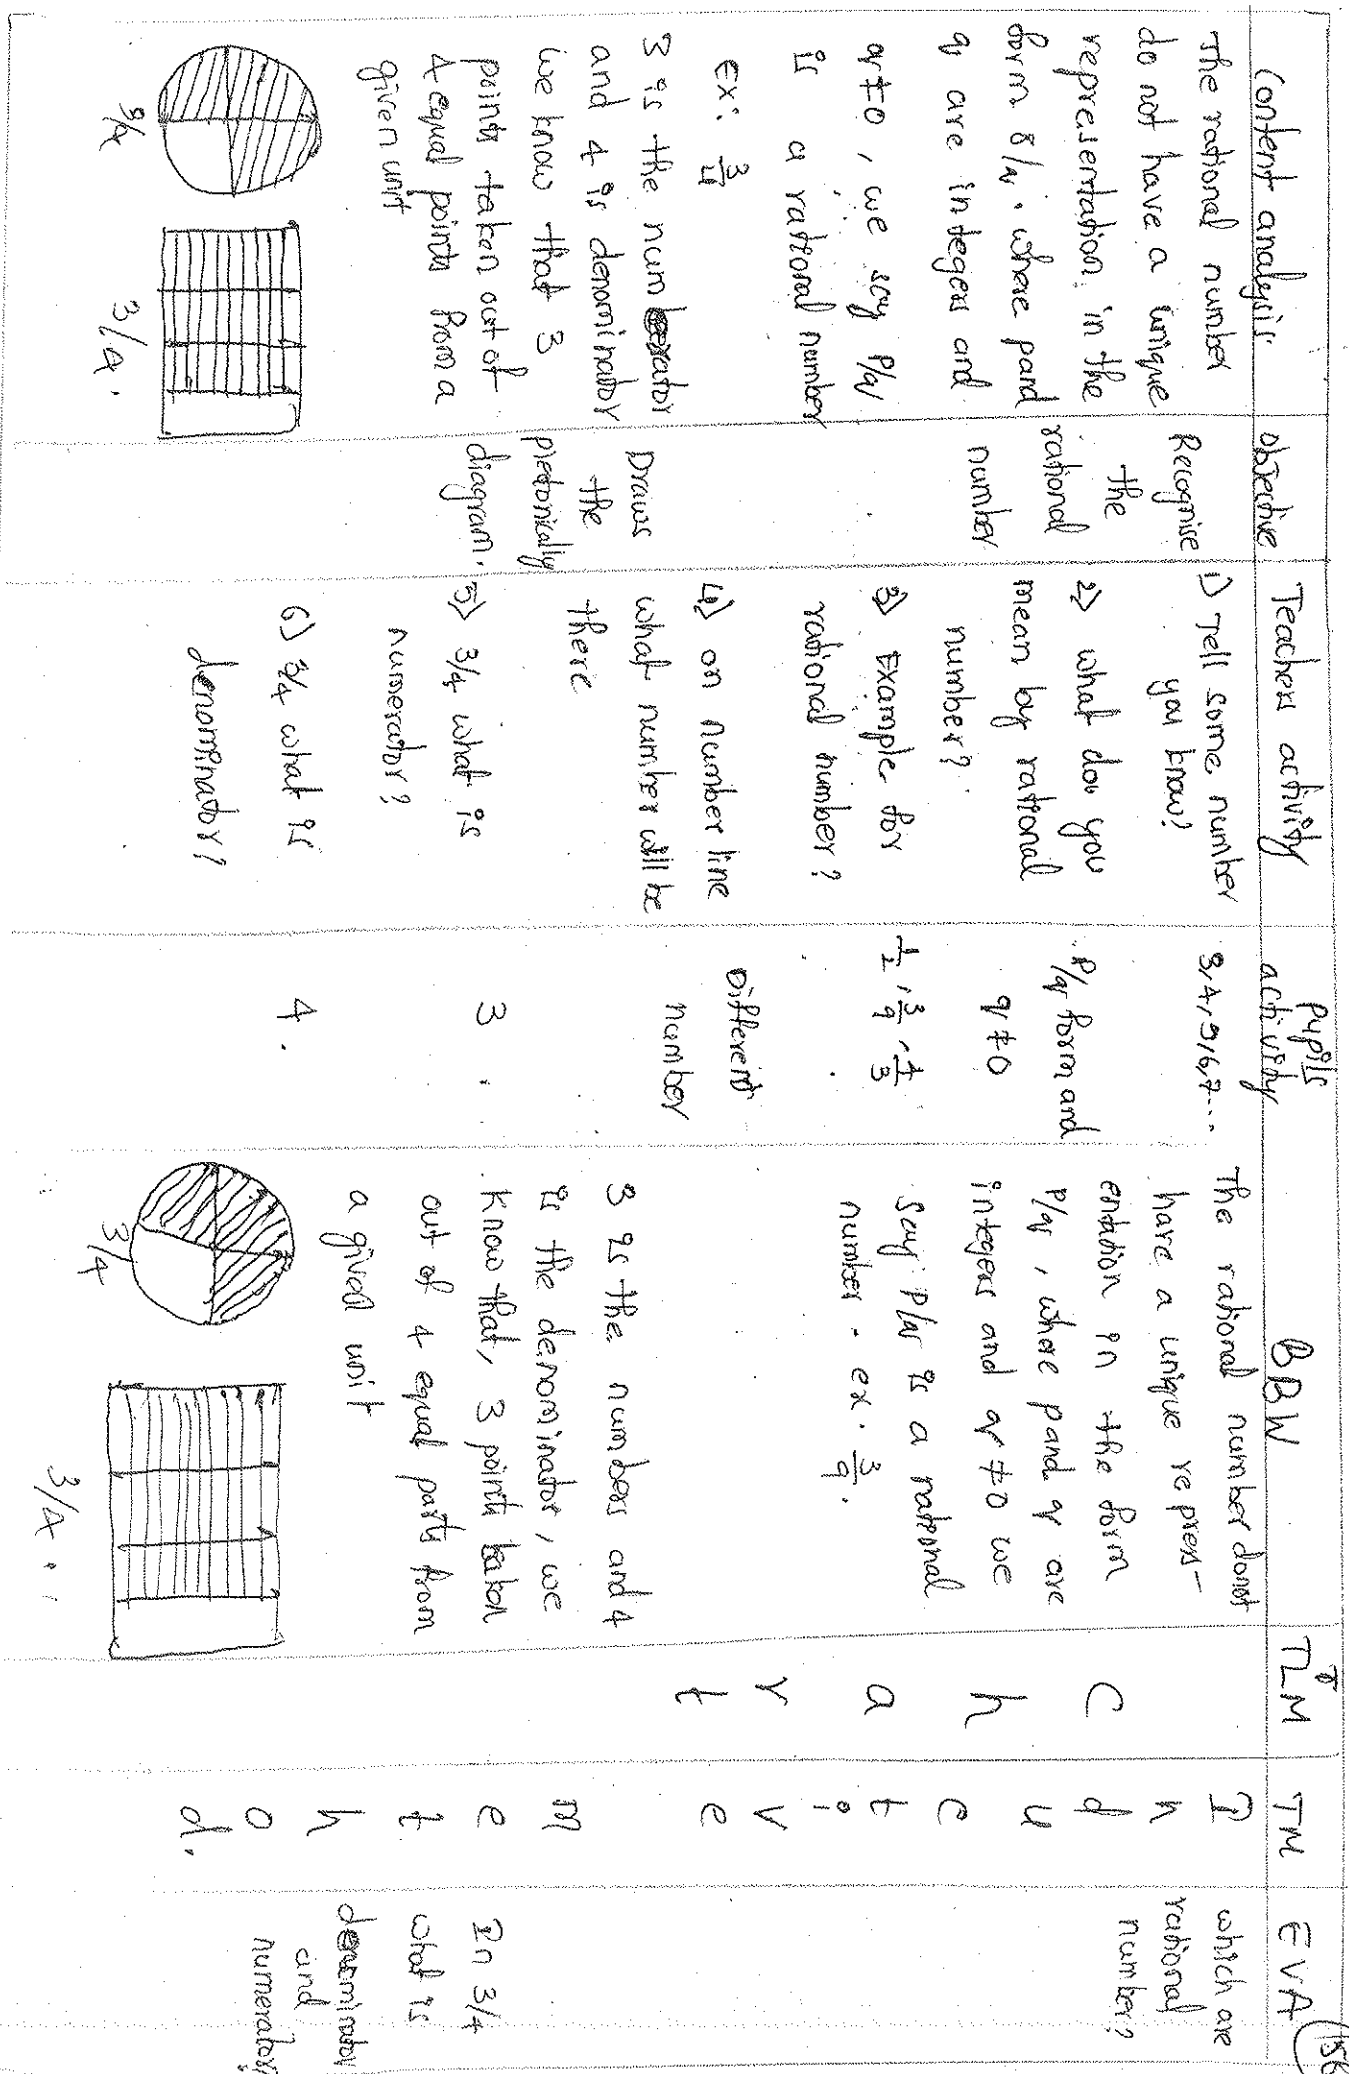 156
Content analysis
The rational number
do not have a unique
representation in the
form P/q. where p and
q are integers and
q≠0, we say P/q
is a rational number
Ex: 3/4
3 is the numberator
and 4 is denominator
we know that 3
points taken out of
4 equal points from a
given unit
3/4
3/4.
objective
Recognise
the
rational
number
Draws
the
pictorically
diagram.
Teachers activity
1) Tell some number
you know?
2) what do you
mean by rational
number?
3) Example for
rational number?
4) on number line
what number will be
there
5) 3/4 what is
numerator?
6) 3/4 what is
denominator?
pupils
activity
3,4,5,6,7...
P/q form and
q≠0
1/2, 3/9, 4/3
Different
number
3
4.
BBW
The rational number donot
have a unique repres-
entation in the form
P/q, where p and q are
integers and q≠0 we
say P/q is a rational
number. ex. 3/9.
3 is the numbers and 4
is the denominator, we
know that, 3 points taken
out of 4 equal parts from
a given unit
3/4
3/4.
TLM
C
h
a
r
t
TM
I
n
d
u
c
t
i
v
e
m
e
t
h
o
d.
EVA
which are
rational
number?
In 3/4
what is
denominator
and
numerator?